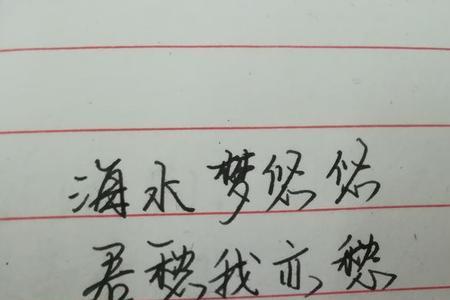 海水梦悠悠
君愁我亦愁